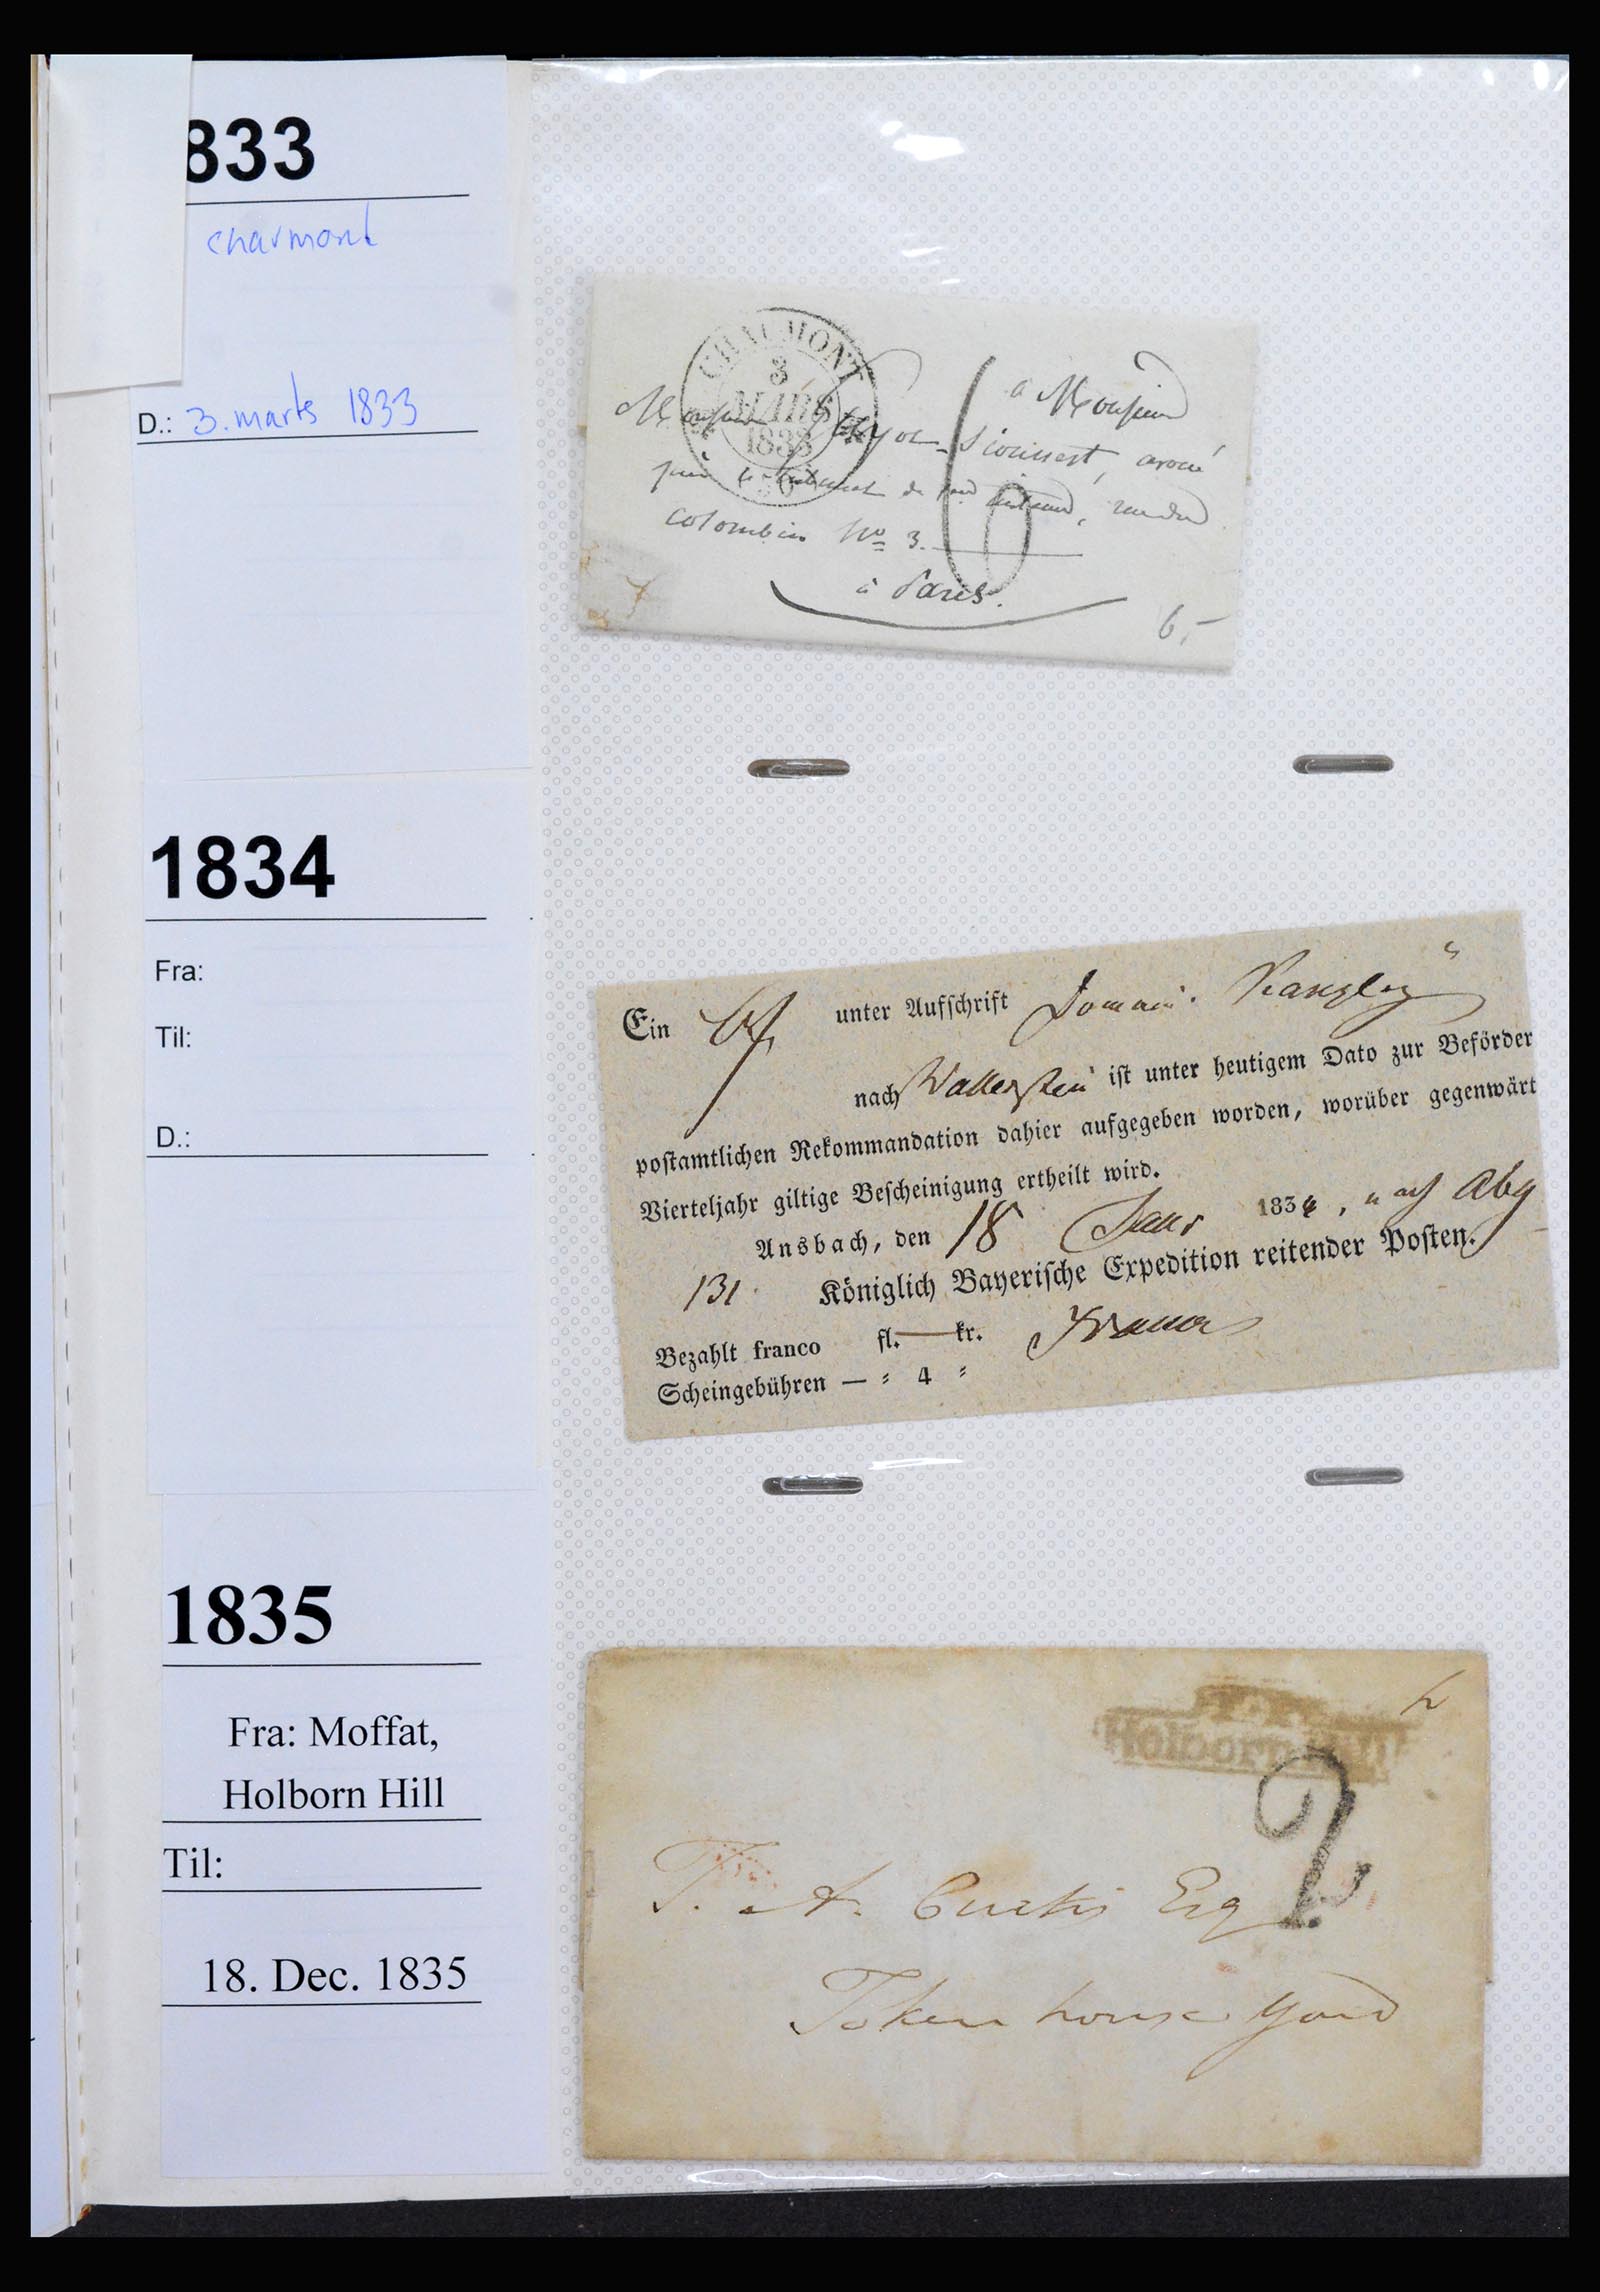 833
charmont
D.: 3. marts 1833
CHAUMONT
3
MARS
1833
a Monsieur
Monsieur avoué
de
colombier No 3.
à Paris.
6,-
1834
Fra:
Til:
D.:
Ein unter Aufſchrift Domain. Kanzley
nach Wallerstein iſt unter heutigem Dato zur Beförder
poſtamtlichen Rekommandation dahier aufgegeben worden, worüber gegenwärt
Vierteljahr giltige Beſcheinigung ertheilt wird.
Ansbach, den 18 Janr 1834, nach Abg
131 Königlich Bayeriſche Expedition reitender Poſten.
Bezahlt franco fl. — kr.
Scheingebühren — 〃 4 〃
1835
Fra: Moffat,
Holborn Hill
Til:
18. Dec. 1835
T.P.
Holborn Hill
2
T. A. Curtis Esq
Token house Yard